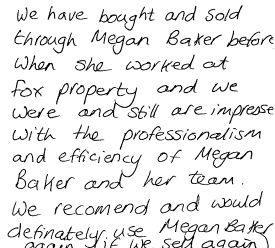 We have bought and sold
through Megan Baker before
when she worked at
fox property and we
were and still are impresse
with the professionalism
and efficiency of Megan
Baker and her team.
We recomend and would
definately use Megan Baker
again if we sell again